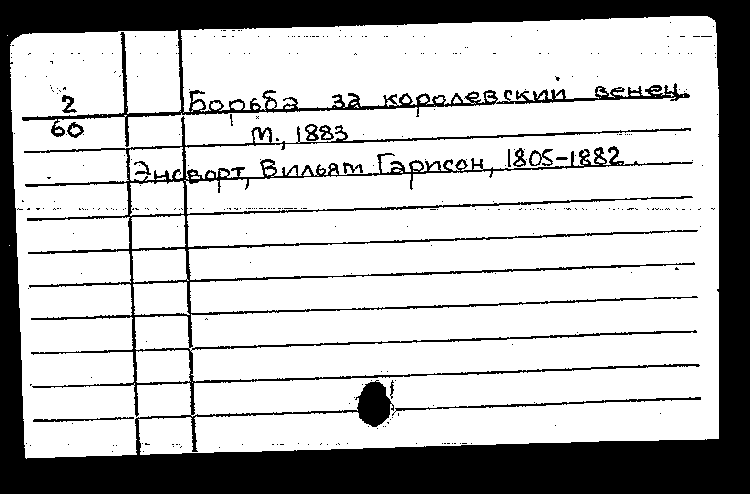 2 Борьба за королевский венец.
60 М., 1883
Энсворт, Вильям Гарисон, 1805-1882.